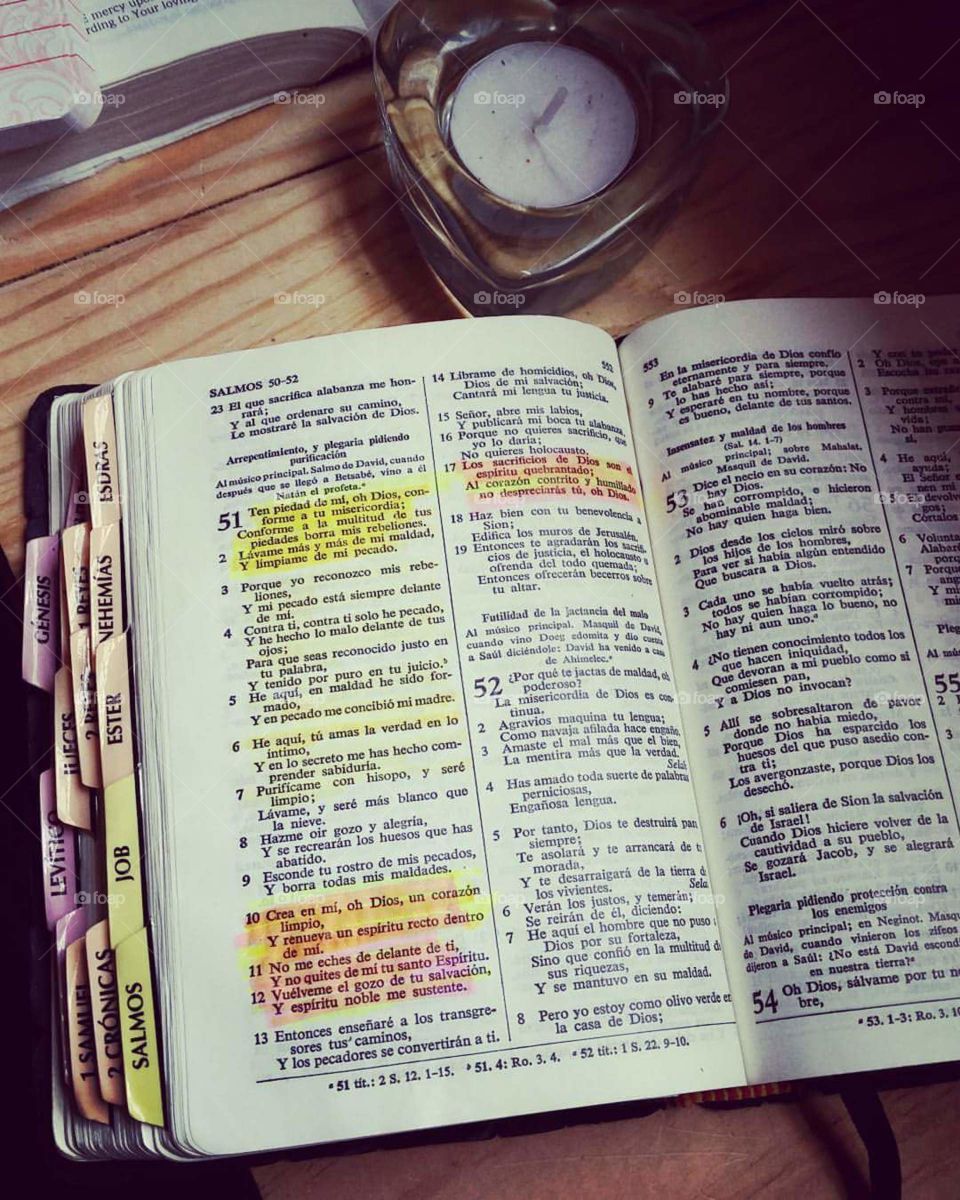 mercy upo
rding to Your loving
foap
SALMOS 50-52
23 El que sacrifica alabanza me hon-
rará;
Y al que ordenare su camino,
Le mostraré la salvación de Dios.
Arrepentimiento, y plegaria pidiendo
purificación
Al músico principal. Salmo de David, cuando
después que se llegó a Betsabé, vino a él
Natán el profeta.ª
51 Ten piedad de mí, oh Dios, con-
forme a tu misericordia;
Conforme a la multitud de tus
piedades borra mis rebeliones.
2 Lávame más y más de mi maldad,
Y límpiame de mi pecado.
3 Porque yo reconozco mis rebe-
liones,
Y mi pecado está siempre delante
de mí.
4 Contra ti, contra ti solo he pecado,
Y he hecho lo malo delante de tus
ojos;
Para que seas reconocido justo en
tu palabra,
Y tenido por puro en tu juicio.ᵇ
5 He aquí, en maldad he sido for-
mado,
Y en pecado me concibió mi madre.
6 He aquí, tú amas la verdad en lo
íntimo,
Y en lo secreto me has hecho com-
prender sabiduría.
7 Purifícame con hisopo, y seré
limpio;
Lávame, y seré más blanco que
la nieve.
8 Hazme oir gozo y alegría,
Y se recrearán los huesos que has
abatido.
9 Esconde tu rostro de mis pecados,
Y borra todas mis maldades.
10 Crea en mí, oh Dios, un corazón
limpio,
Y renueva un espíritu recto dentro
de mí.
11 No me eches de delante de ti,
Y no quites de mí tu santo Espíritu.
12 Vuélveme el gozo de tu salvación,
Y espíritu noble me sustente.
13 Entonces enseñaré a los transgre-
sores tus caminos,
Y los pecadores se convertirán a ti.
552
14 Líbrame de homicidios, oh Dios,
Dios de mi salvación;
Cantará mi lengua tu justicia.
15 Señor, abre mis labios,
Y publicará mi boca tu alabanza.
16 Porque no quieres sacrificio, que
yo lo daría;
No quieres holocausto.
17 Los sacrificios de Dios son el
espíritu quebrantado;
Al corazón contrito y humillado
no despreciarás tú, oh Dios.
18 Haz bien con tu benevolencia a
Sion;
Edifica los muros de Jerusalén.
19 Entonces te agradarán los sacrifi-
cios de justicia, el holocausto u
ofrenda del todo quemada;
Entonces ofrecerán becerros sobre
tu altar.
Futilidad de la jactancia del malo
Al músico principal. Masquil de David,
cuando vino Doeg edomita y dio cuenta
a Saúl diciéndole: David ha venido a casa
de Ahimelec.ᶜ
52 ¿Por qué te jactas de maldad, oh
poderoso?
La misericordia de Dios es con-
tinua.
2 Agravios maquina tu lengua;
Como navaja afilada hace engaño.
3 Amaste el mal más que el bien,
La mentira más que la verdad.
Selah
4 Has amado toda suerte de palabras
perniciosas,
Engañosa lengua.
5 Por tanto, Dios te destruirá para
siempre;
Te asolará y te arrancará de tu
morada,
Y te desarraigará de la tierra de
los vivientes.
Selah
6 Verán los justos, y temerán;
Se reirán de él, diciendo:
7 He aquí el hombre que no puso
Dios por su fortaleza,
Sino que confió en la multitud de
sus riquezas,
Y se mantuvo en su maldad.
8 Pero yo estoy como olivo verde en
la casa de Dios;
ª 51 tít.: 2 S. 12. 1-15. ᵇ 51. 4: Ro. 3. 4. ᶜ 52 tít.: 1 S. 22. 9-10.
553
En la misericordia de Dios confío
eternamente y para siempre.
9 Te alabaré para siempre, porque
lo has hecho así;
Y esperaré en tu nombre, porque
es bueno, delante de tus santos.
Insensatez y maldad de los hombres
(Sal. 14. 1-7)
Al músico principal; sobre Mahalat.
Masquil de David.
53 Dice el necio en su corazón: No
hay Dios.
Se han corrompido, e hicieron
abominable maldad;
No hay quien haga bien.
2 Dios desde los cielos miró sobre
los hijos de los hombres,
Para ver si había algún entendido
Que buscara a Dios.
3 Cada uno se había vuelto atrás;
todos se habían corrompido;
No hay quien haga lo bueno, no
hay ni aun uno.ª
4 ¿No tienen conocimiento todos los
que hacen iniquidad,
Que devoran a mi pueblo como si
comiesen pan,
Y a Dios no invocan?
5 Allí se sobresaltaron de pavor
donde no había miedo,
Porque Dios ha esparcido los
huesos del que puso asedio con-
tra ti;
Los avergonzaste, porque Dios los
desechó.
6 ¡Oh, si saliera de Sion la salvación
de Israel!
Cuando Dios hiciere volver de la
cautividad a su pueblo,
Se gozará Jacob, y se alegrará
Israel.
Plegaria pidiendo protección contra
los enemigos
Al músico principal; en Neginot. Masquil
de David, cuando vinieron los zifeos
dijeron a Saúl: ¿No está David escondido
en nuestra tierra?ª
54 Oh Dios, sálvame por tu
bre,
ª 53. 1-3: Ro. 3. 10
2 Oh Dios,
Escucha
3 Porque
contra mí,
Y hombres
vida;
No han
sí.
4 He aquí,
ayuda;
El Señor
6
7
55
2
3
ESDRAS
GÉNESIS
1 REYES
NEHEMÍAS
JUECES
2 REYES
ESTER
LEVÍTICO
JOB
1 SAMUEL
2 CRÓNICAS
SALMOS